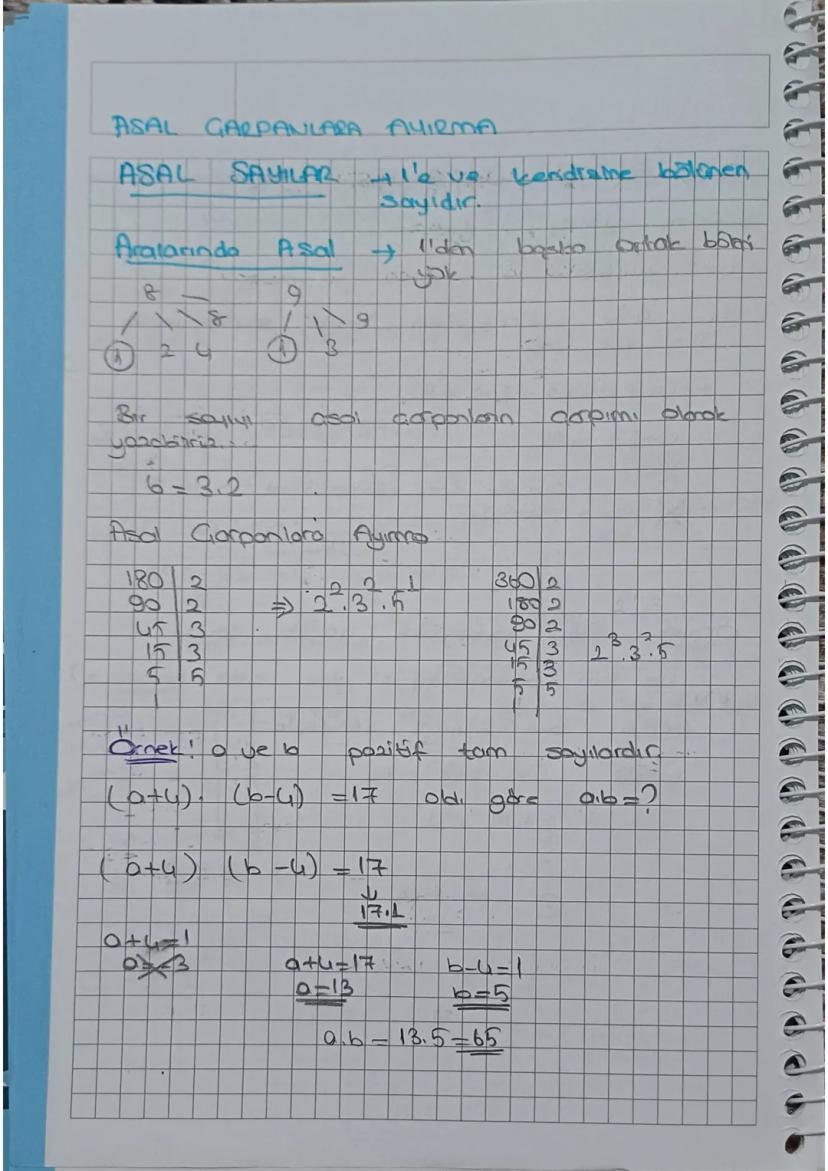 ASAL ÇARPANLARA AYIRMA
ASAL SAYILAR → 1'e ve kendisine bölünen
sayıdır.
Aralarında Asal → 1'den başka ortak böleni
yok
8 9
8 9
1 2 4 1 3
Bir sayıyı asal çarpanların çarpımı olarak
yazabiliriz.
6 = 3.2
Asal Çarpanlara Ayırma
180 | 2 360 | 2
90 | 2 ⇒ 2².3².5¹ 180 | 2
45 | 3 90 | 2
15 | 3 45 | 3 2³.3².5
5 | 5 15 | 3
1 5 | 5
1
Örnek: a ve b pozitif tam sayılardır.
(a+4). (b-4) = 17 old. göre a.b=?
(a+4) (b-4) = 17
↓
17.1
a+4=1
a=-3 a+4=17 b-4=1
a=13 b=5
a.b = 13.5 = 65